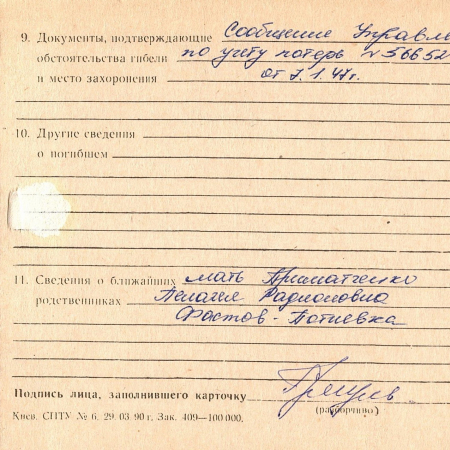 9. Документы, подтверждающие Сообщение Управле
обстоятельства гибели по учету потерь № 56652
и место захоронения от 7.1.47г.
10. Другие сведения
о погибшем
11. Сведения о ближайших мать Приматченко
родственниках Пелагея Радионовна
Фастов-Потиевка
Подпись лица, заполнившего карточку
(разборчиво)
Киев. СПТУ № 6. 29. 03 90 г. Зак. 409—100 000.